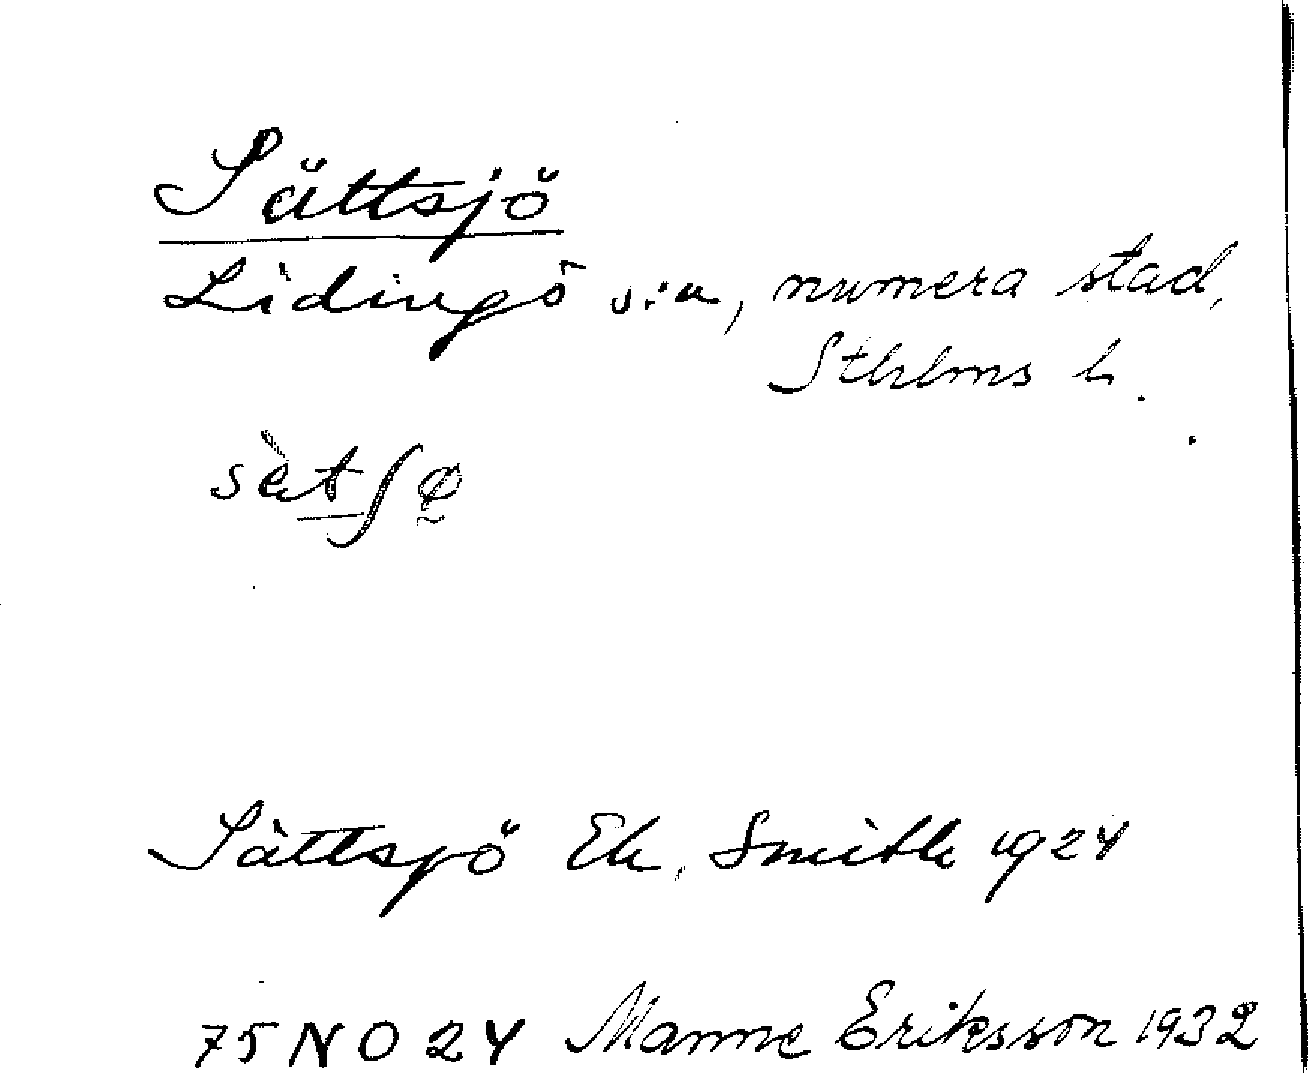 Sättsjö
Lidingö s:n, numera stad,
Sthlms l.
sèt∫ø̰
Sättsjö Ek. Smith 1924
75 NO 24 Manne Eriksson 1932